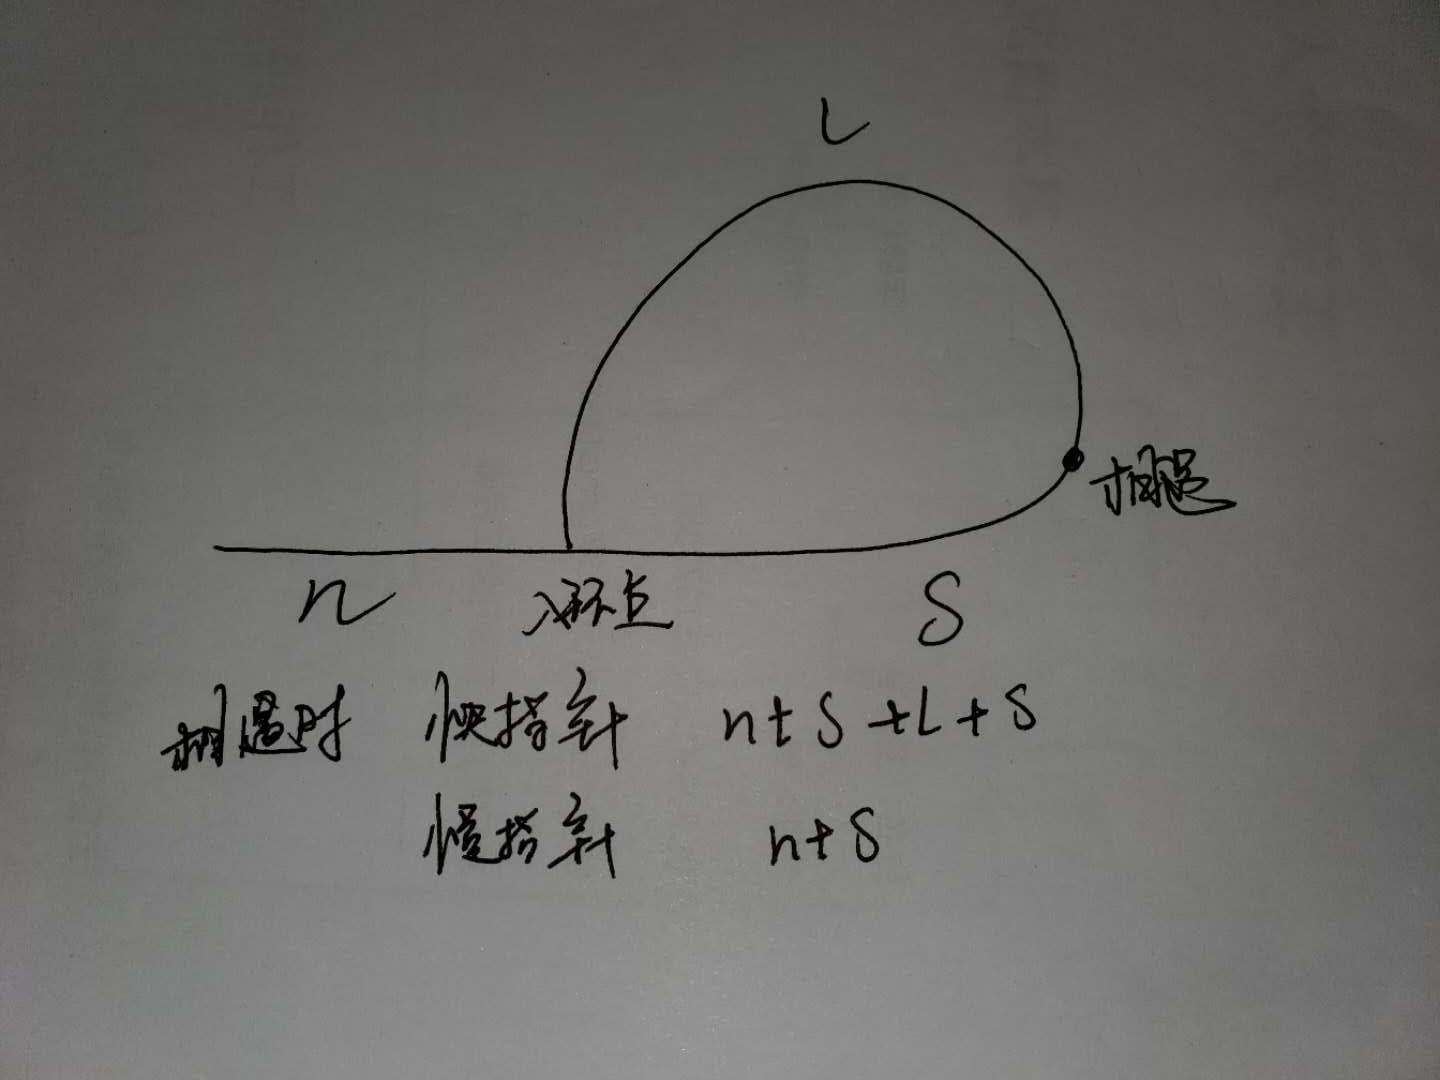 L
相遇
n 入环点 S
相遇时 快指针 n+S+L+S
慢指针 n+S